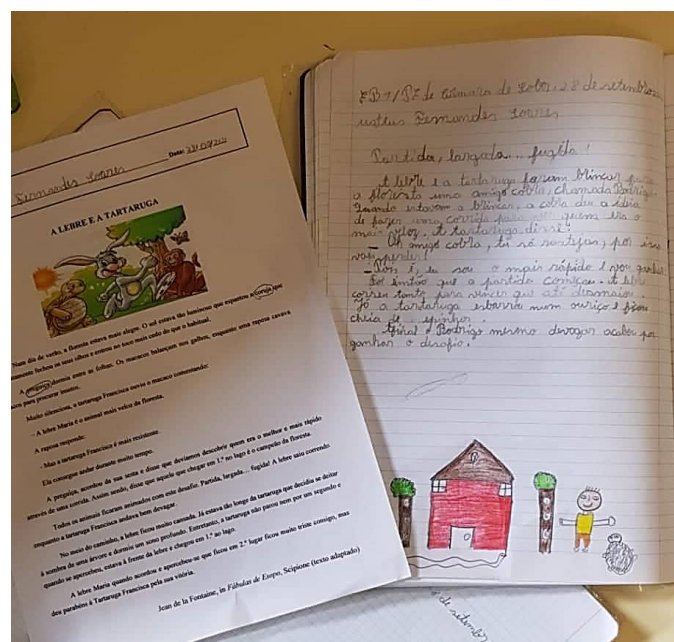 Fernandes Soares Data: 28/09/202
A LEBRE E A TARTARUGA
Num dia de verão, a floresta estava mais alegre. O sol estava tão luminoso que espantou a coruja que
fechou os seus olhos e entrou no seu mais cedo do que o habitual.
A preguiça dormia entre as folhas. Os macacos balançam nos galhos, enquanto uma raposa cavava
para procurar insetos.
Muito silenciosa, a tartaruga Francisca ouviu o macaco comentando:
- A lebre Maria é o animal mais veloz da floresta.
A raposa responde:
- Mas a tartaruga Francisca é mais resistente.
Ela consegue andar durante muito tempo.
A preguiça, acordou da sua sesta e disse que deviamos descobrir quem era o melhor e mais rápido
através de uma corrida. Assim sendo, disse que aquele que chegar em 1.º no lago é o campeão da floresta.
Todos os animais ficaram animados com este desafio. Partida, largada... fugida! A lebre saiu correndo
enquanto a tartaruga Francisca andava bem devagar.
No meio do caminho, a lebre ficou muito cansada. Já estava tão longe da tartaruga que decidiu se deitar
à sombra de uma árvore e dormiu um sono profundo. Entretanto, a tartaruga não parou nem por um segundo e
quando se apercebeu, estava à frente da lebre e chegou em 1.º ao lago.
A lebre Maria quando acordou e apercebeu-se que ficou em 2.º lugar ficou muito triste consigo, mas
deu parabéns à Tartaruga Francisca pela sua vitória.
Jean de la Fontaine, in Fábulas de Esopo, Scipione (texto adaptado)
EB1/PE de Câmara de Lobos, 28 de setembro
Fernandes Soares
Partida, largada... fugida!
A lebre e a tartaruga foram brincar para
a floresta uma amiga cobra, chamada Rodrigo.
Quando estavam a brincar, a cobra deu a ideia
de fazer uma corrida para ver quem era o
mais veloz. A tartaruga disse:
- Oh amigo cobra, tu só rastejas, por isso
vais perder!
- Pois é, eu sou o mais rápido e vou ganhar
Foi então que a partida começou. A lebre
correu tanto para vencer que até desmaiou.
Já a tartaruga esbarrou num ouriço e ficou
cheia de espinhos.
Afinal o Rodrigo mesmo devagar acabou por
ganhar o desafio.
de setembro